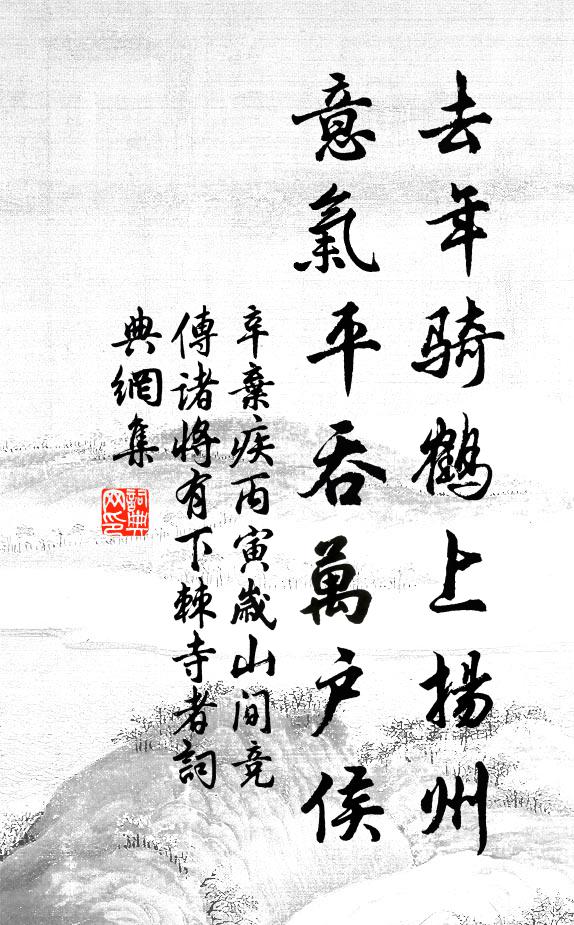 去年骑鹤上揚州
意氣平吞萬户侯
辛棄疾丙寅歲山间竞
傳諸將有下棘寺者詞
典網集
詞典网印